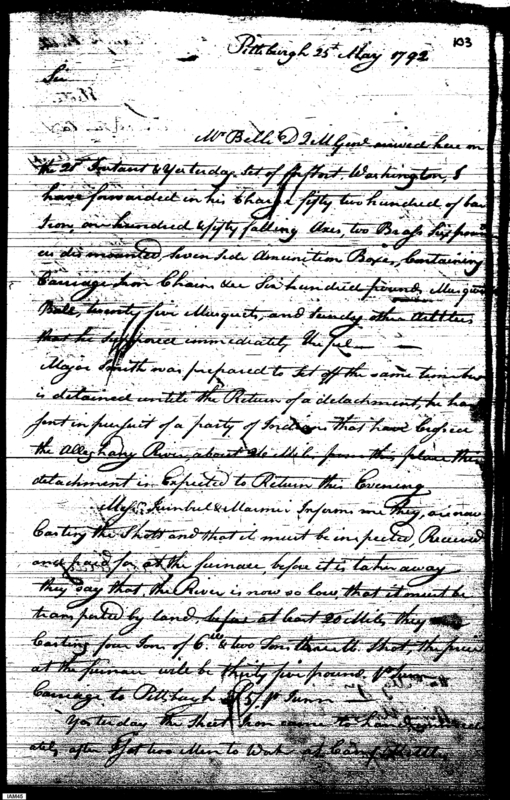 103
Pittsburgh 25th May 1792
Sir
Mr Belli D Q M Genl arived here on
the 21st Instant & Yesterday Set of for Fort Washington, I
have forwarded in his Charge fifty two hundred of bar
Iron, one hundred & fifty falling Axes, two Brass Six pound
ers dismounted, Seven Side Amunition Boxes, Containing
Carriage Iron Chains &ce Six hundred pounds Musquet
Ball, twenty five Musquets, and Sundry other Articles
that he Supposed immediately Usefull
Major Smith was prepared to Set off the same time but
is detained untill the Return of a detachment, he has
sent in pursuit of a party of Indians that have Crossed
the Alleghany River, about Miles from this place this
detachment is Expected to Return this Evening
Messrs Turnbull & Marmie Informs me they are now
Casting the Shott and that it must be inspected, Received
and paid for at the furnace, before it is taken away
they say that the River is now so low, that it must be
transported by land, at least 20 Miles they are
Casting four Tons of & two Tons three lb. Shot, the price
at the furnace will be thirty five pounds pr Tunn
Carriage to Pittsburgh £5 pr Tunn
Yesterday the Sheet Iron came to hand, immedi
ately after I got two Men to Work at Camp Kettles
IAM45